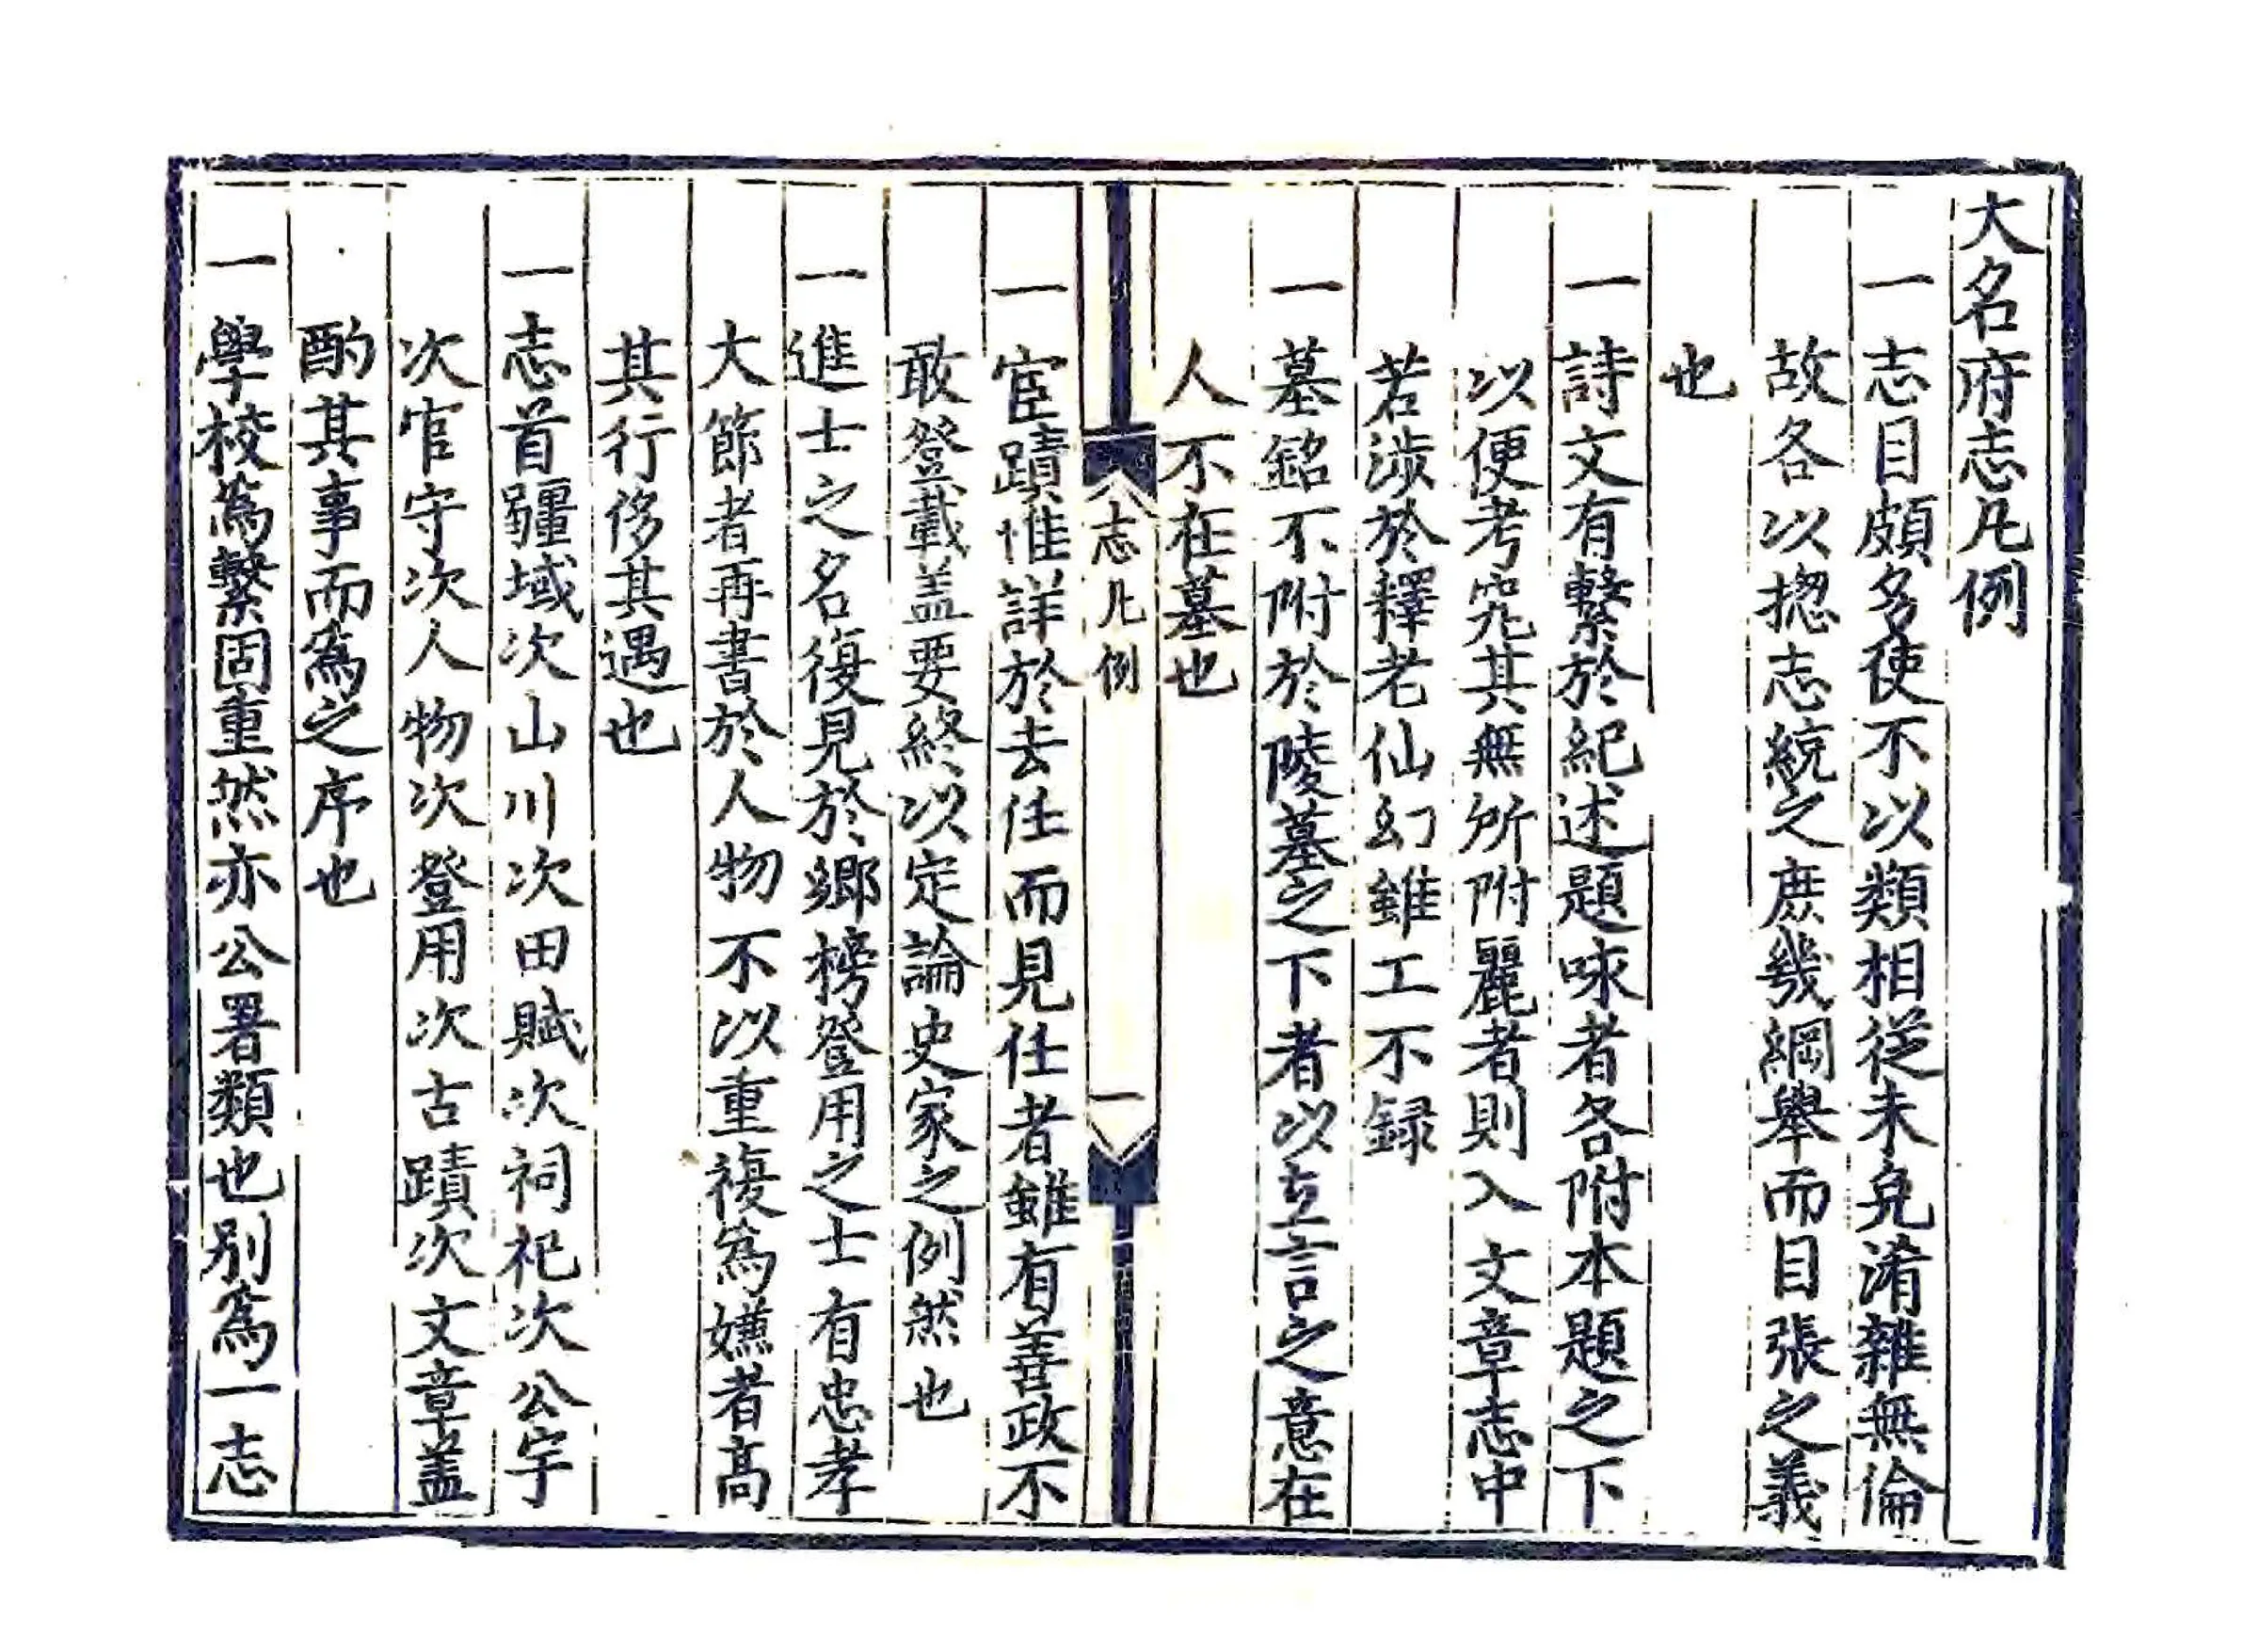 大名府志凡例
一志目頗多使不以類相從未免淆雜無倫
故各以揔志統之庶幾綱舉而目張之義
也
一詩文有繫於紀述題咏者各附本題之下
以便考究其無所附麗者則入文章志中
若涉於釋老仙幻雖工不録
一墓銘不附於陵墓之下者以立言之意在
人不在墓也
志凡例
一
一宦蹟惟詳於去任而見任者雖有善政不
敢登載盖要終以定論史家之例然也
一進士之名復見於鄉榜登用之士有忠孝
大節者再書於人物不以重複爲嫌者高
其行侈其遇也
一志首疆域次山川次田賦次祠祀次公宇
次官守次人物次登用次古蹟次文章盖
酌其事而爲之序也
一學校爲繫固重然亦公署類也别爲一志